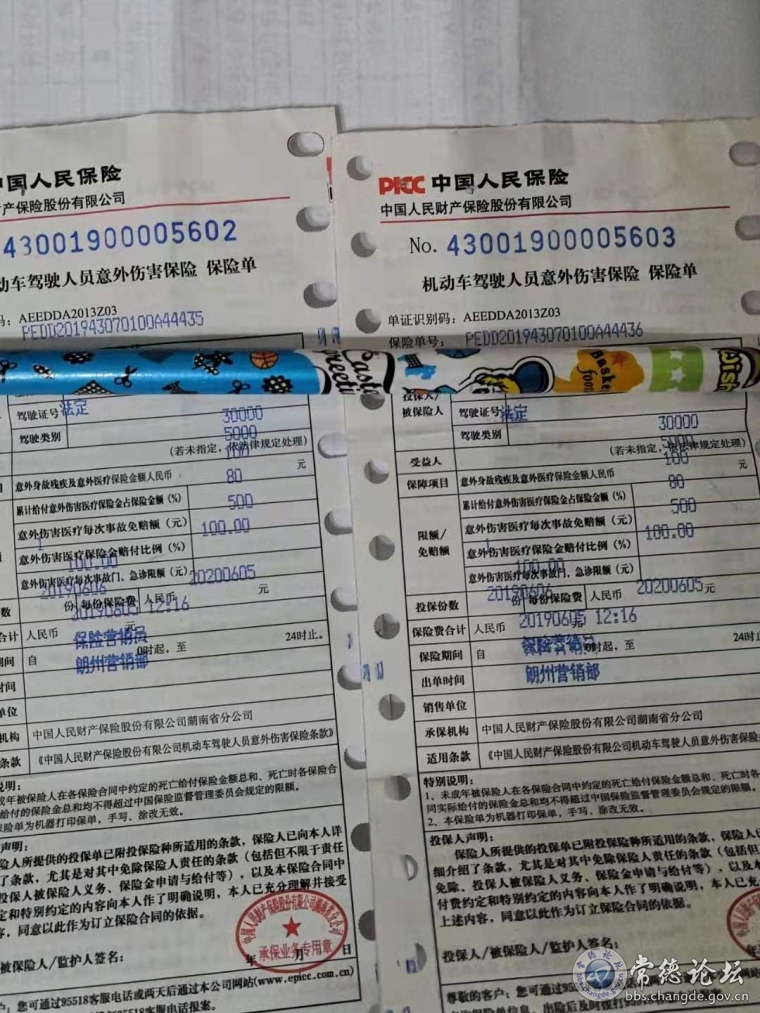 中国人民保险
产保险股份有限公司
43001900005602
动车驾驶人员意外伤害保险 保险单
码：AEEDDA2013Z03
PEDD201943070100A44435
驾驶证号
法定
30000
驾驶类别
5000
100
(若未指定，依法律规定处理)
意外身故残疾及意外医疗保险金额人民币
80
元
累计给付意外伤害医疗保险金占保险金额（%）
500
意外伤害医疗每次事故免赔额（元）
100.00
1
意外伤害医疗保险金赔付比例（%）
100.00
意外伤害医疗每次事故门、急诊限额（元）
20190606
20200605
份数
份 每份保险费
人民币
元
20190605 12:16
合计
人民币
元
保险营销员
期间
自
0时起，至
24时止。
朗州营销部
时间
单位
机构
中国人民财产保险股份有限公司湖南省分公司
条款
《中国人民财产保险股份有限公司机动车驾驶人员意外伤害保险条款》
说明：
成年被保险人在各保险合同中约定的死亡给付保险金额总和、死亡时各保险合
给付的保险金总和均不得超过中国保险监督管理委员会规定的限额。
保险单为机器打印保单，手写、涂改无效。
声明：
险人所提供的投保单已附投保险种所适用的条款，保险人已向本人详
了条款，尤其是对其中免除保险人责任的条款（包括但不限于责任
投保人被保险人义务、保险金申请与给付等），以及本保险合同中
定和特别约定的内容向本人作了明确说明，本人已充分理解并接受
，同意以此作为订立保险合同的依据。
被保险人/监护人签名：
年 月 日
承保业务专用章
：您可通过95518客服电话或两天后通过本公司网站(www.epicc.com.cn)
PICC 中国人民保险
中国人民财产保险股份有限公司
No. 43001900005603
机动车驾驶人员意外伤害保险 保险单
单证识别码：AEEDDA2013Z03
保险单号：PEDD201943070100A44436
投保人/
被保险人
驾驶证号
法定
30000
驾驶类别
5000
受益人
(若未指定，依法律规定处理)
100
保障项目
意外身故残疾及意外医疗保险金额人民币
80
元
限额/
免赔额
累计给付意外伤害医疗保险金占保险金额（%）
500
意外伤害医疗每次事故免赔额（元）
100.00
1
意外伤害医疗保险金赔付比例（%）
100.00
意外伤害医疗每次事故门、急诊限额（元）
20190606
20200605
投保份数
份 每份保险费
人民币
元
20190605 12:16
保险费合计
人民币
元
保险营销员
保险期间
自
0时起，至
24时止。
朗州营销部
出单时间
销售单位
承保机构
中国人民财产保险股份有限公司湖南省分公司
适用条款
《中国人民财产保险股份有限公司机动车驾驶人员意外伤害保险
特别说明：
1、未成年被保险人在各保险合同中约定的死亡给付保险金额总和、死亡时各
同实际给付的保险金总和均不得超过中国保险监督管理委员会规定的限额。
2、本保险单为机器打印保单，手写、涂改无效。
投保人声明：
保险人所提供的投保单已附投保险种所适用的条款，保险人已
细介绍了条款，尤其是对其中免除保险人责任的条款（包括但
免除、投保人被保险人义务、保险金申请与给付等），以及本
付费约定和特别约定的内容向本人作了明确说明，本人已充
上述内容，同意以此作为订立保险合同的依据。
投保人/被保险人/监护人签名：
尊敬的客户：您可通过95518
常德论坛
bbs.changde.gov.cn